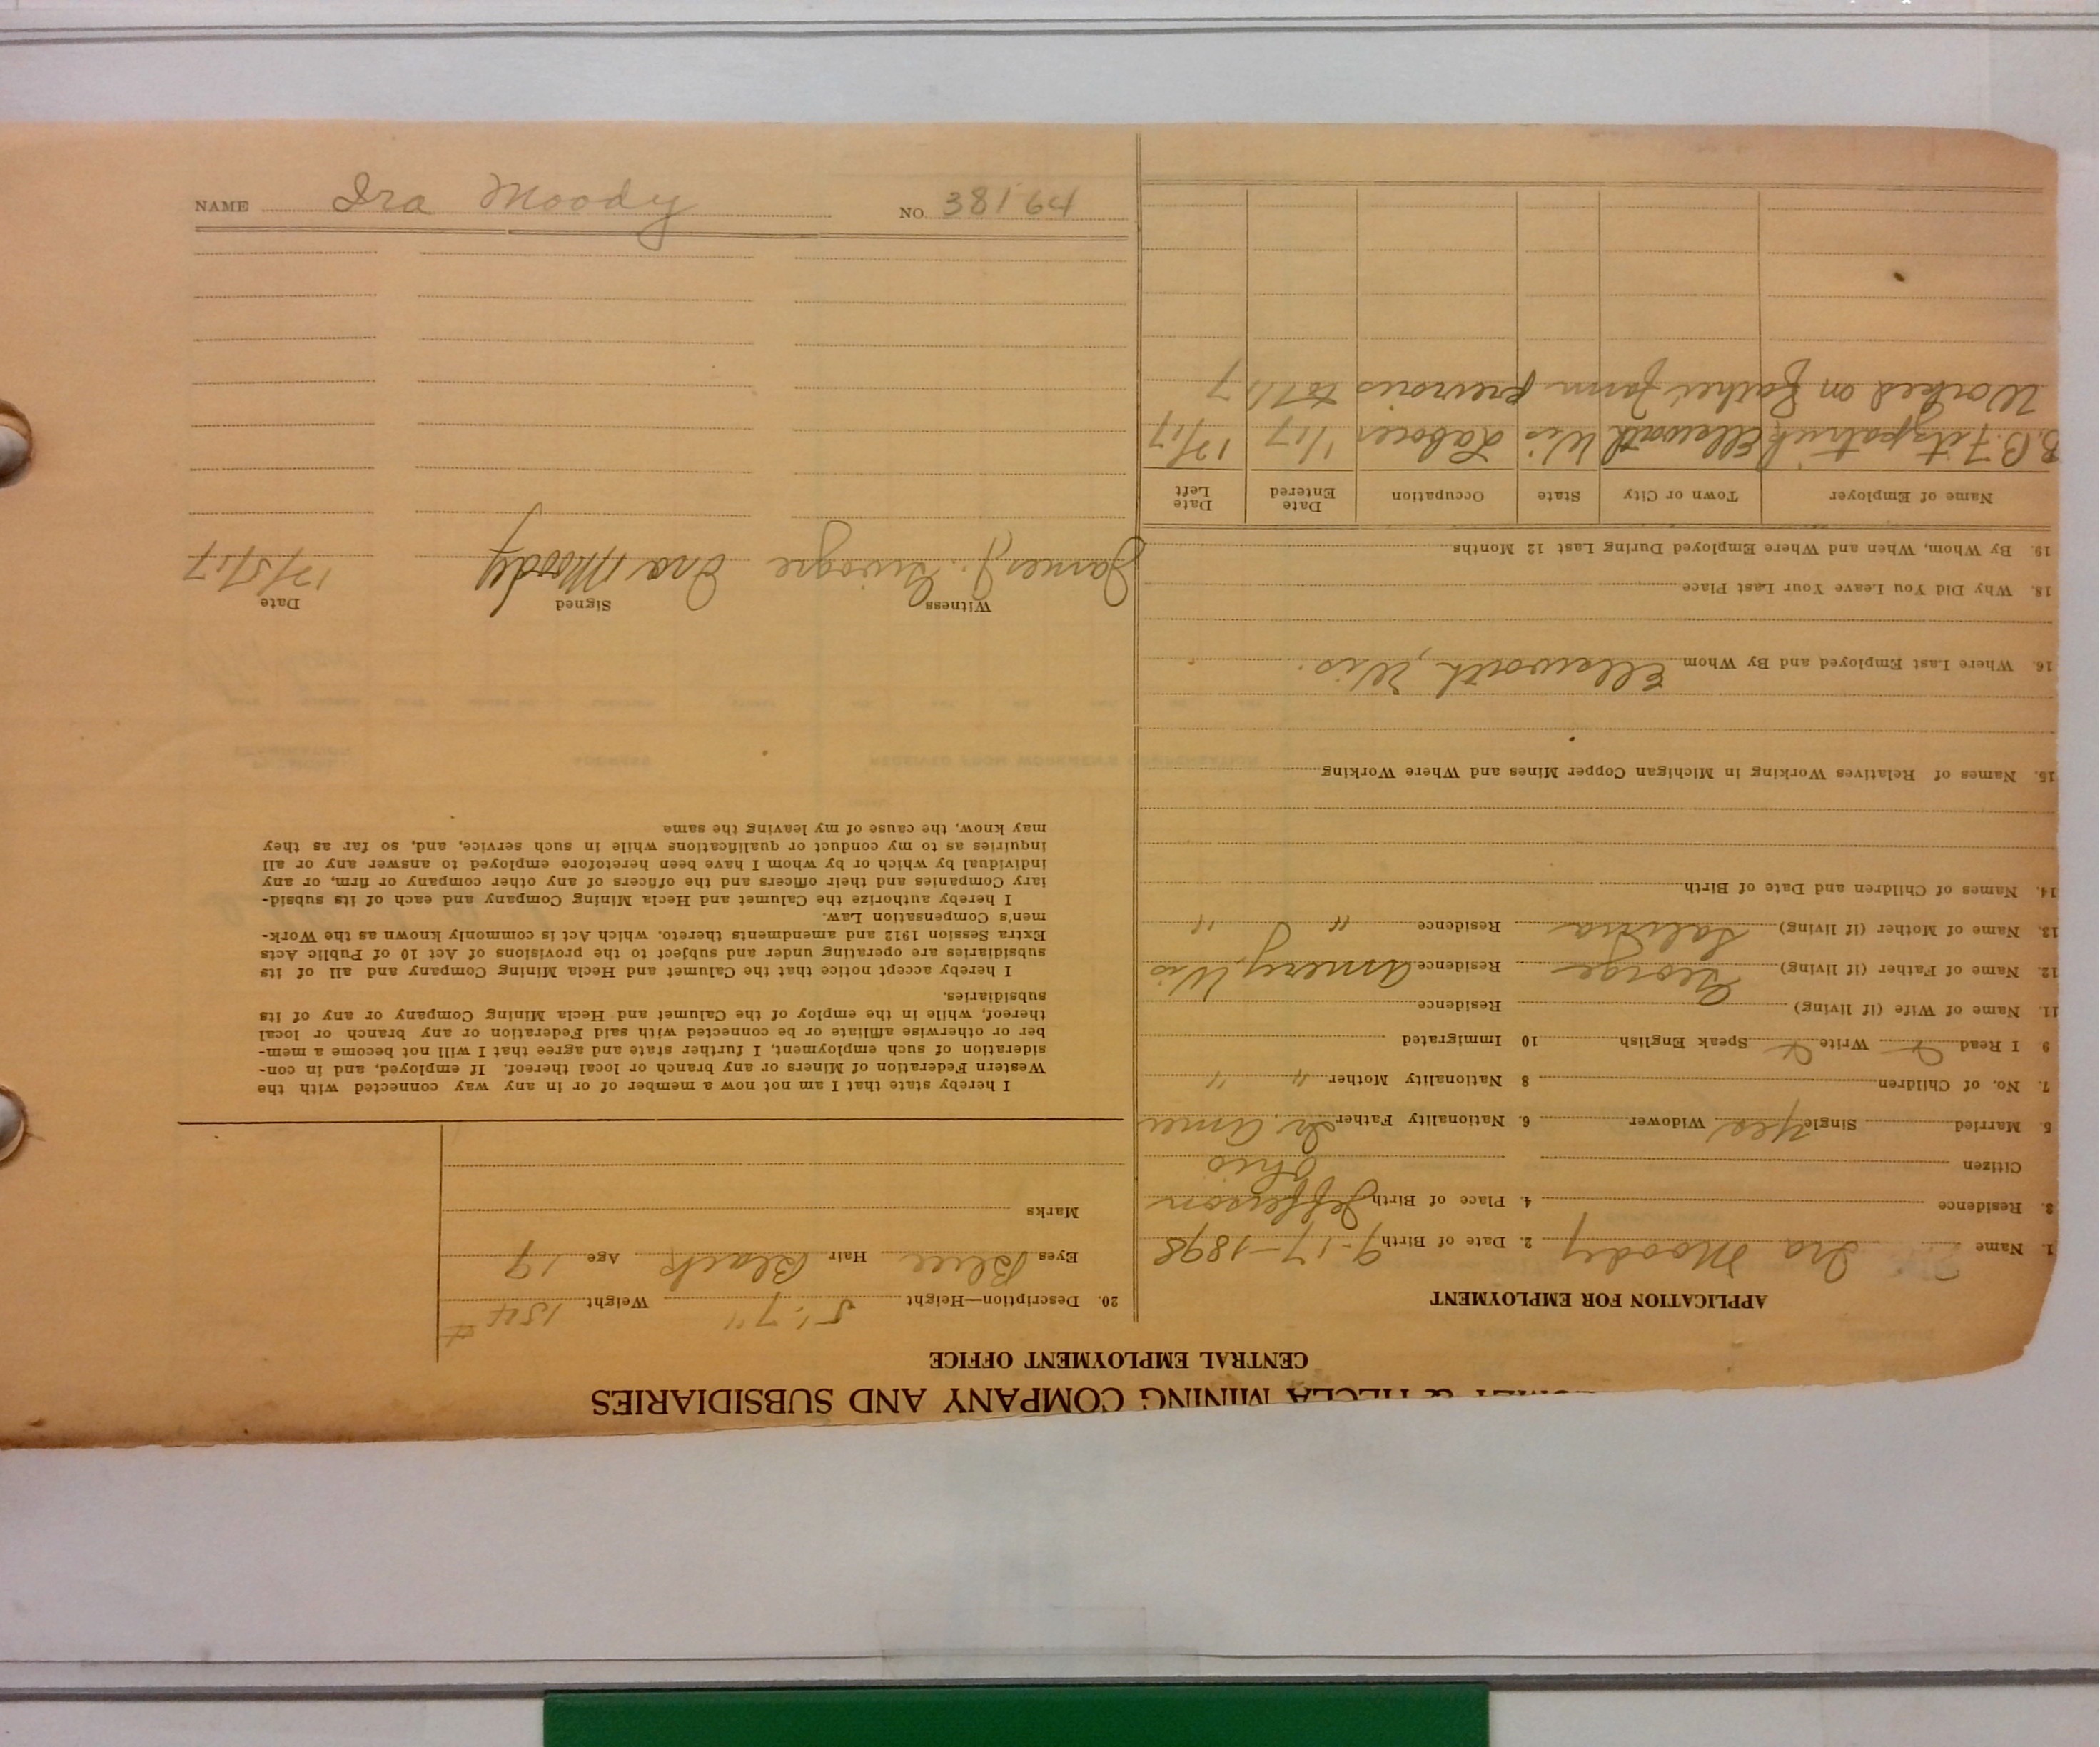 NAME Ira Moody NO. 38164
& HECLA MINING COMPANY AND SUBSIDIARIES
CENTRAL EMPLOYMENT OFFICE
APPLICATION FOR EMPLOYMENT
1. Name Ira Moody 2. Date of Birth 9-17-1898
3. Residence 4. Place of Birth Jefferson
Citizen Ohio
5. Married Single Yes Widower 6. Nationality Father Amer
7. No. of Children 8 Nationality Mother " "
9 I Read Write Speak English 10 Immigrated
11. Name of Wife (if living) Residence
12. Name of Father (if living) George Residence Amery, Wis
13. Name of Mother (if living) Residence " "
14. Names of Children and Date of Birth
15. Names of Relatives Working in Michigan Copper Mines and Where Working
16. Where Last Employed and By Whom Ellsworth, Wis.
18. Why Did You Leave Your Last Place
19. By Whom, When and Where Employed During Last 12 Months
Name of Employer Town or City State Occupation Date Entered Date Left
B.B. Fitzpatrick Ellsworth Wis Laborer 1/17 12/17
Worked on father farm previous to 1/17
20. Description—Height 5' 7" Weight 154 #
Eyes Blue Hair Black Age 19
Marks
I hereby state that I am not now a member of or in any way connected with the
Western Federation of Miners or any branch or local thereof. If employed, and in con-
sideration of such employment, I further state and agree that I will not become a mem-
ber or otherwise affiliate or be connected with said Federation or any branch or local
thereof, while in the employ of the Calumet and Hecla Mining Company or any of its
subsidiaries.
I hereby accept notice that the Calumet and Hecla Mining Company and all of its
subsidiaries are operating under and subject to the provisions of Act 10 of Public Acts
Extra Session 1912 and amendments thereto, which Act is commonly known as the Work-
men's Compensation Law.
I hereby authorize the Calumet and Hecla Mining Company and each of its subsid-
iary Companies and their officers and the officers of any other company or firm, or any
individual by which or by whom I have been heretofore employed to answer any or all
inquiries as to my conduct or qualifications while in such service, and, so far as they
may know, the cause of my leaving the same
Witness Signed Date
James J. Ira Moody 12/5/17